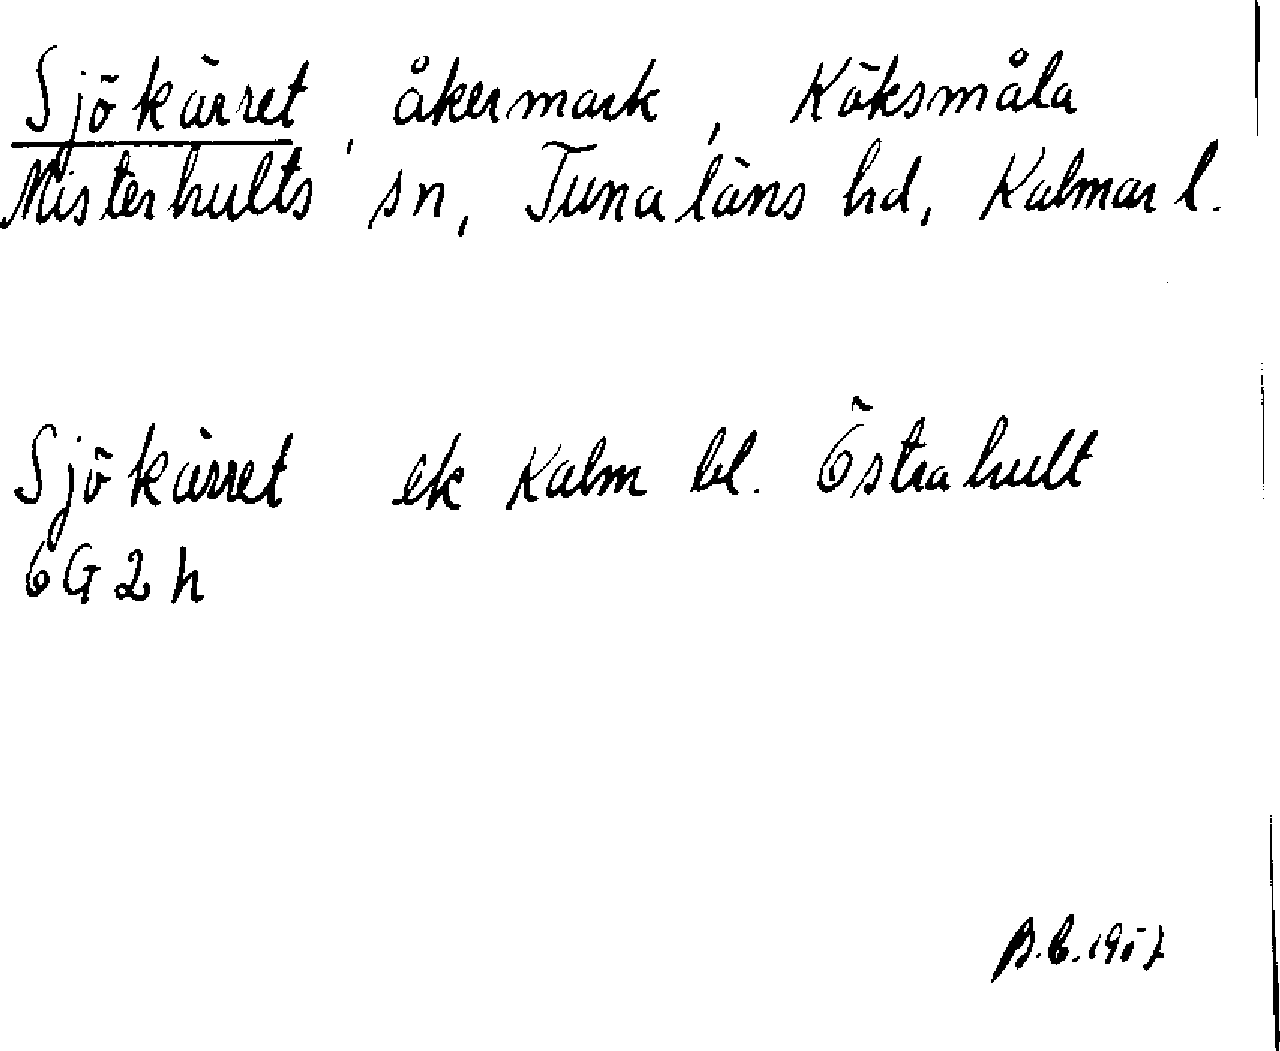 Sjökärret, åkermark, Köksmåla
Misterhults sn, Tunaläns hd, Kalmar l.
Sjökärret ek Kalm bl. Östrahult
6G2h